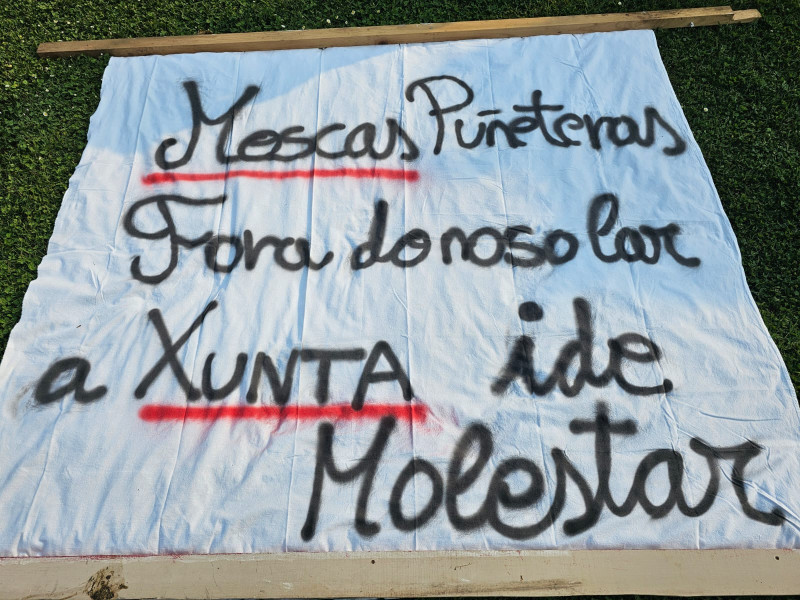 Moscas Puñeteras
Fora do noso lar
a XUNTA ide
Molestar